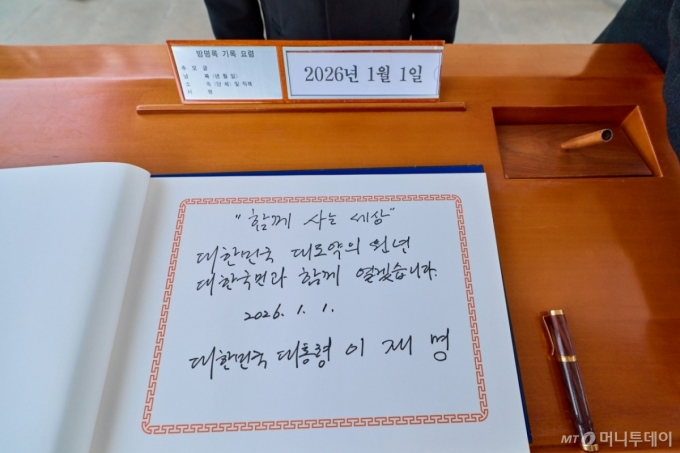 방명록 기록 요령
추 모 글
년 월 일
소 속 (단 체) 및 직책
2026년 1월 1일
"함께 사는 세상"
대한민국 대도약의 원년
대한국민과 함께 열겠습니다.
2026. 1. 1.
대한민국 대통령 이 재 명
MT 머니투데이